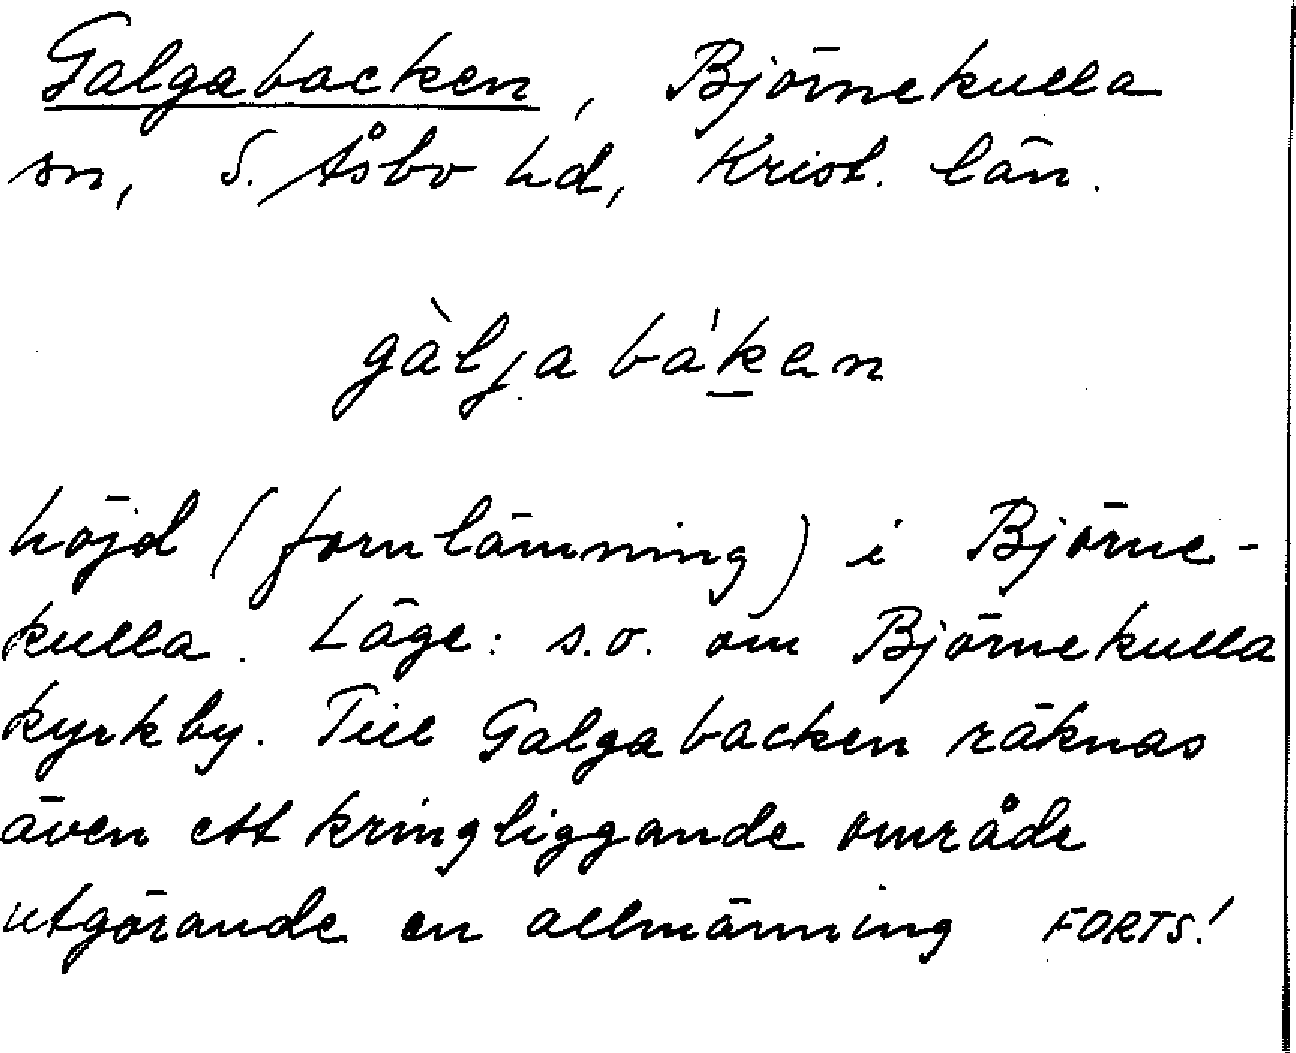 Galgabacken, Björnekulla
sn, S. Åsbo hd, Krist. län.
gàljabáken
höjd (fornlämning) i Björne-
kulla. Läge: s.o. om Björnekulla
kyrkby. Till Galgabacken räknas
även ett kringliggande område
utgörande en allmänning FORTS!